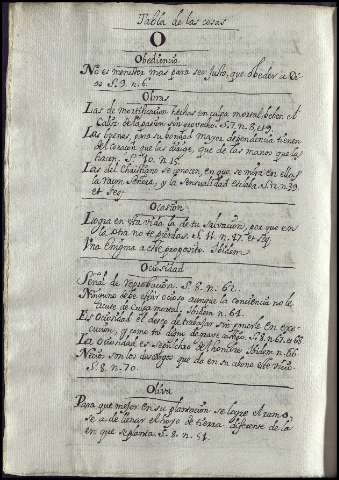 Tabla de las cosas
O
Obediencia
No es menester mas para ser Justo, que obedecer a Di-
os S. 9. n. 6.
Obras
Las de mortificacion hechas en culpa mortal beben el
Caliz de la pasion sin provecho. S. 7. n. 8. et 9.
Las agenas para su bondad mayor dependencia tienen
del corazon que las dirige, que de las manos que las
hacen. S. 10. n. 15.
Las del Christiano se conocen, en que se mira en ellas
la razon Señora, y la sensualidad esclava. S. n. 39.
et seq.
Ocasion
Logra en esta vida la de tu Salvacion, por que en
la otra no te pierdas. S. 11. n. 47. et seq.
Una Enigma a este proposito. Ibidem.
Ociosidad
Señal de reprobacion. S. 8. n. 62.
Ninguno debe estar ocioso aunque la conciencia no le
acuse de Culpa mortal. Ibidem n. 64.
Es Ociosidad el deseo de trabajar sin ponerle en exe-
cucion, y como tal digno de grave castigo. S. 8. n. 67. et 68
La ociosidad es sepulcro del hombre Ibidem n. 66
Necios son los que en su abono este vicio
S. 8. n. 70.
Oliva
Para que mejor en su plantacion se logre el ramo,
se a de llenar el hoyo de tierra diferente de la
en que se planta. S. 8. n. 54.